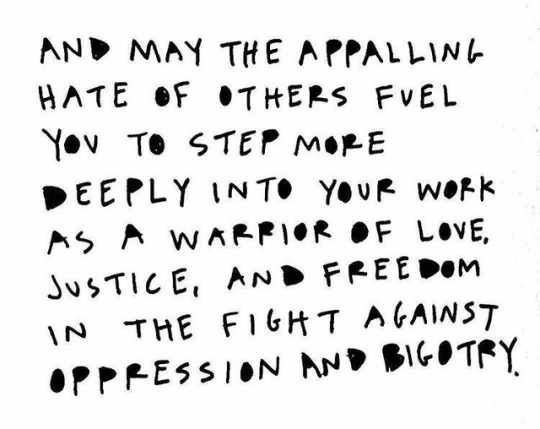 AND MAY THE APPALLING
HATE OF OTHERS FUEL
YOU TO STEP MORE
DEEPLY INTO YOUR WORK
AS A WARRIOR OF LOVE,
JUSTICE, AND FREEDOM
IN THE FIGHT AGAINST
OPPRESSION AND BIGOTRY.